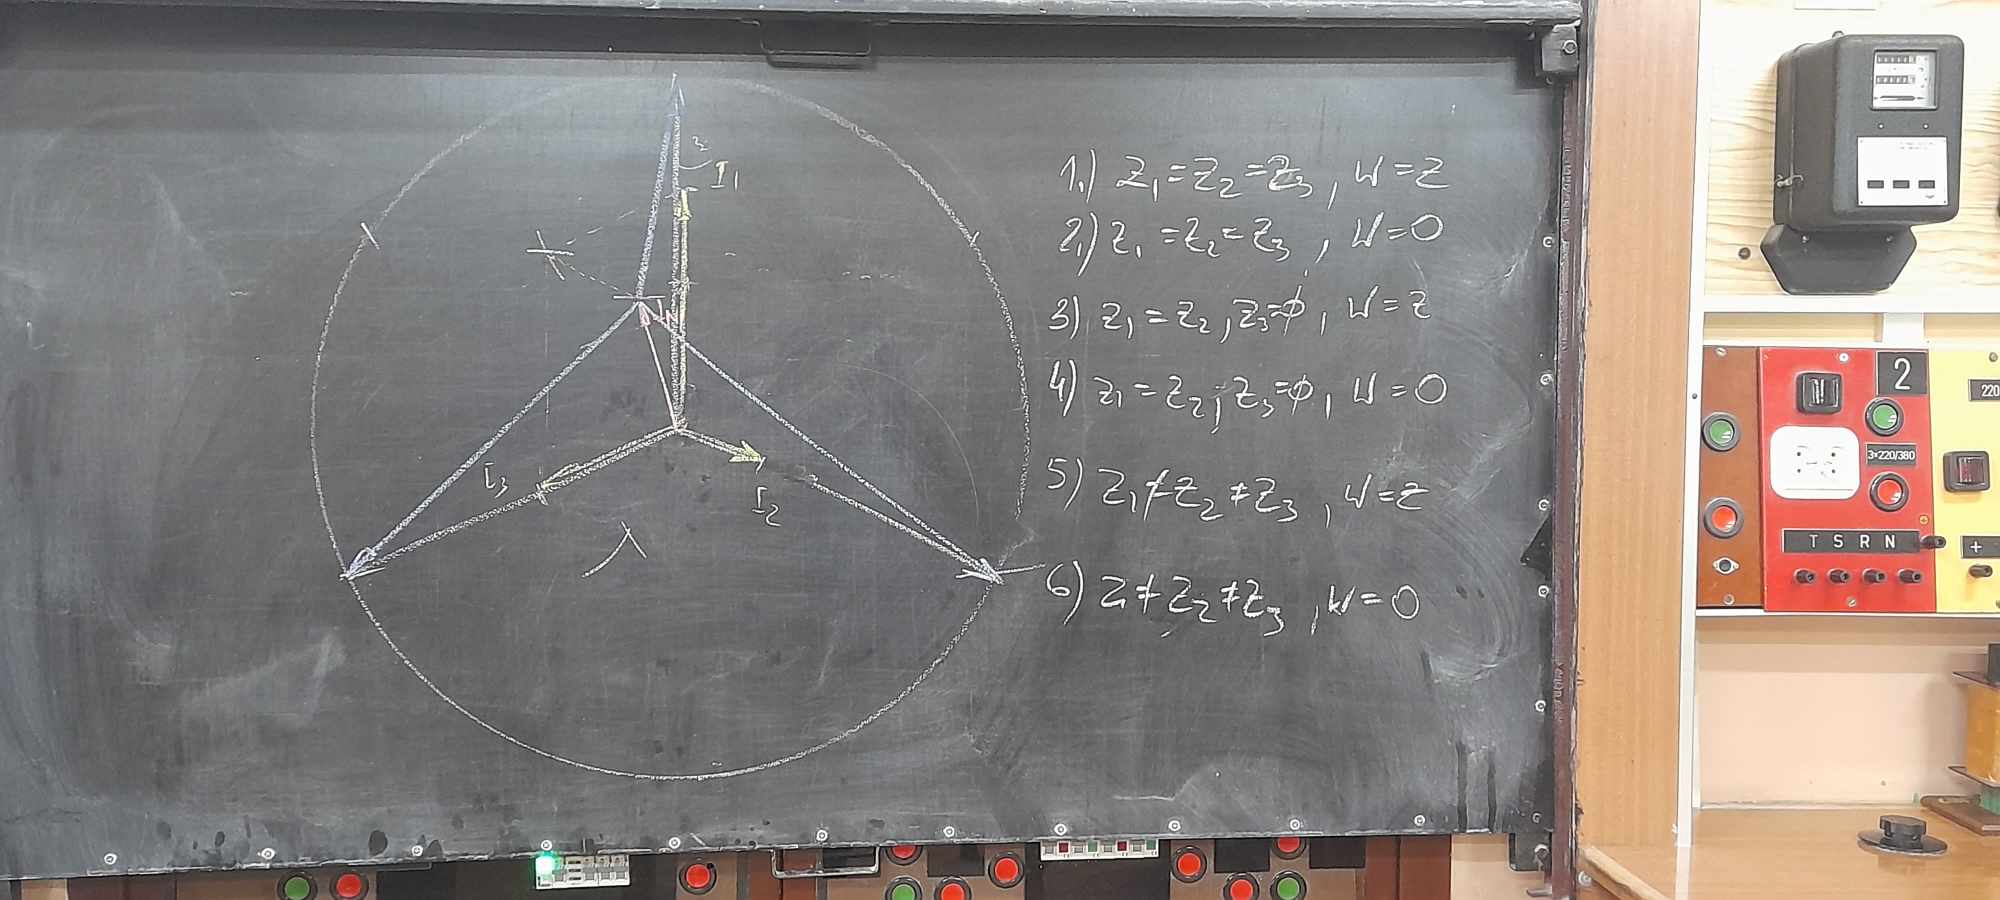 I₁
I₃
I₂
1.) z₁ = z₂ = z₃, W = z
2.) z₁ = z₂ = z₃, W = 0
3) z₁ = z₂, z₃=ϕ, W = z
4) z₁ = z₂, z₃=ϕ, W = 0
5) z₁ ≠ z₂ ≠ z₃, W = z
6) z₁ ≠ z₂ ≠ z₃, W = 0
2
220
3×220/380
T S R N
+